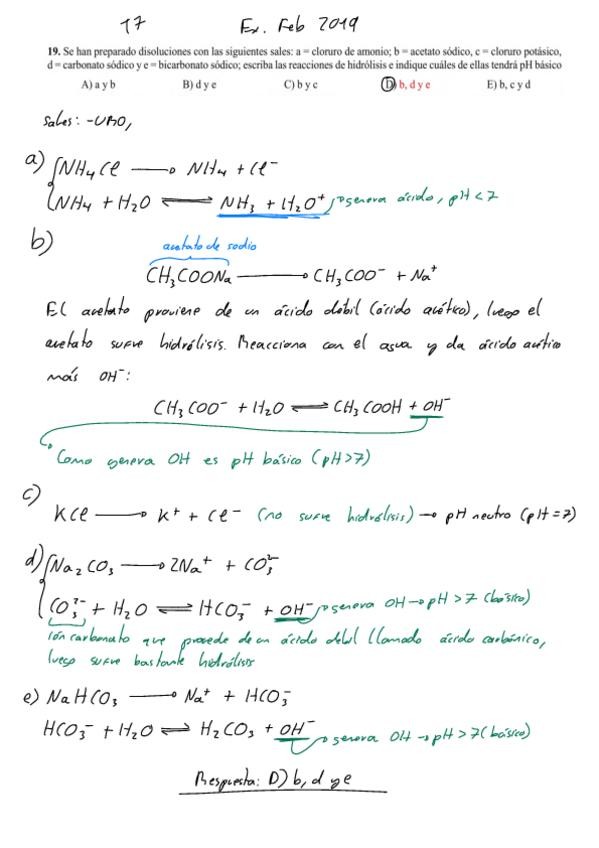 T7 Ex. Feb 2019
19. Se han preparado disoluciones con las siguientes sales: a = cloruro de amonio; b = acetato sódico, c = cloruro potásico,
d = carbonato sódico y e = bicarbonato sódico; escriba las reacciones de hidrólisis e indique cuáles de ellas tendrá pH básico
A) a y b B) d y e C) b y c D) b, d y e E) b, c y d
Sales:
a) NH₄Cl → NH₄ + Cl⁻
NH₄ + H₂O ⇌ NH₃ + H₂O⁺ → genera ácido, pH < 7
b)
acetato de sodio
CH₃COONa → CH₃COO⁻ + Na⁺
El acetato proviene de un ácido débil (ácido acético), luego el
acetato sufre hidrólisis. Reacciona con el agua y da ácido acético
más OH⁻:
CH₃COO⁻ + H₂O ⇌ CH₃COOH + OH⁻
Como genera OH es pH básico (pH>7)
c)
KCl → K⁺ + Cl⁻ (no sufre hidrólisis) → pH neutro (pH = 7)
d) Na₂CO₃ → 2Na⁺ + CO₃²⁻
CO₃²⁻ + H₂O ⇌ HCO₃⁻ + OH⁻ → genera OH → pH > 7 (básico)
ión carbonato que procede de un ácido débil llamado ácido carbónico,
luego sufre bastante hidrólisis
e) NaHCO₃ → Na⁺ + HCO₃⁻
HCO₃⁻ + H₂O ⇌ H₂CO₃ + OH⁻
→ genera OH → pH > 7 (básico)
Respuesta: D) b, d y e